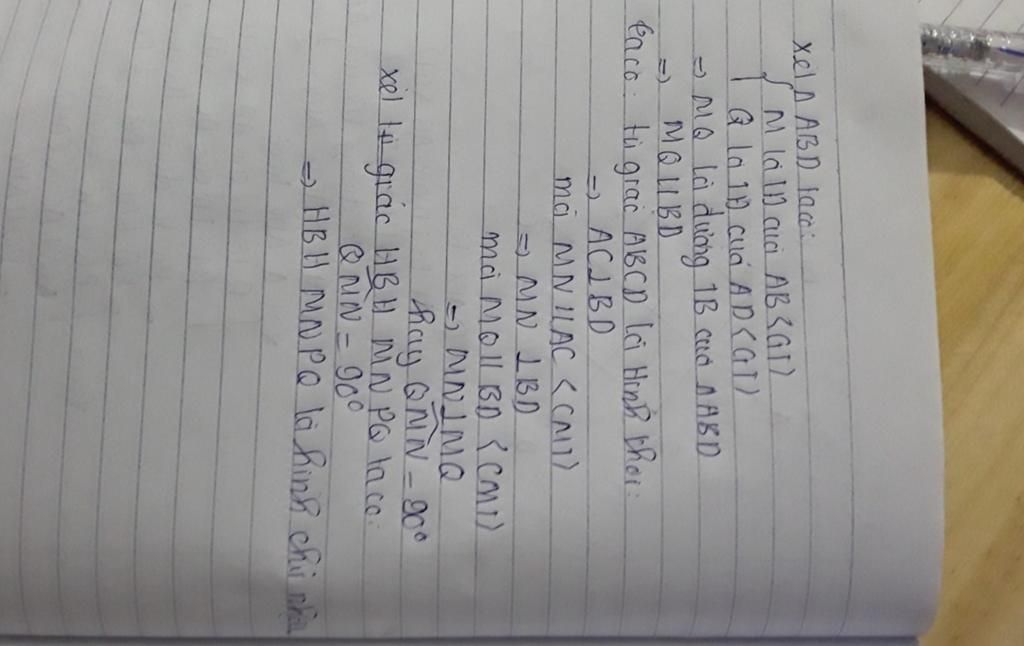 xét Δ ABD ta có:
{ M là TĐ của AB <GT>
Q là TĐ của AD <GT>
=> MQ là đường TB của Δ ABD
=> MQ // BD
ta có: tứ giác ABCD là Hình thoi:
=> AC ⊥ BD
mà MN // AC <CMT>
=> MN ⊥ BD
mà MQ // BD <CMT>
=> MN ⊥ MQ
hay QMN = 90°
xét tứ giác HBH MNPQ ta có:
QMN = 90°
=> HBH MNPQ là hình chữ nhật